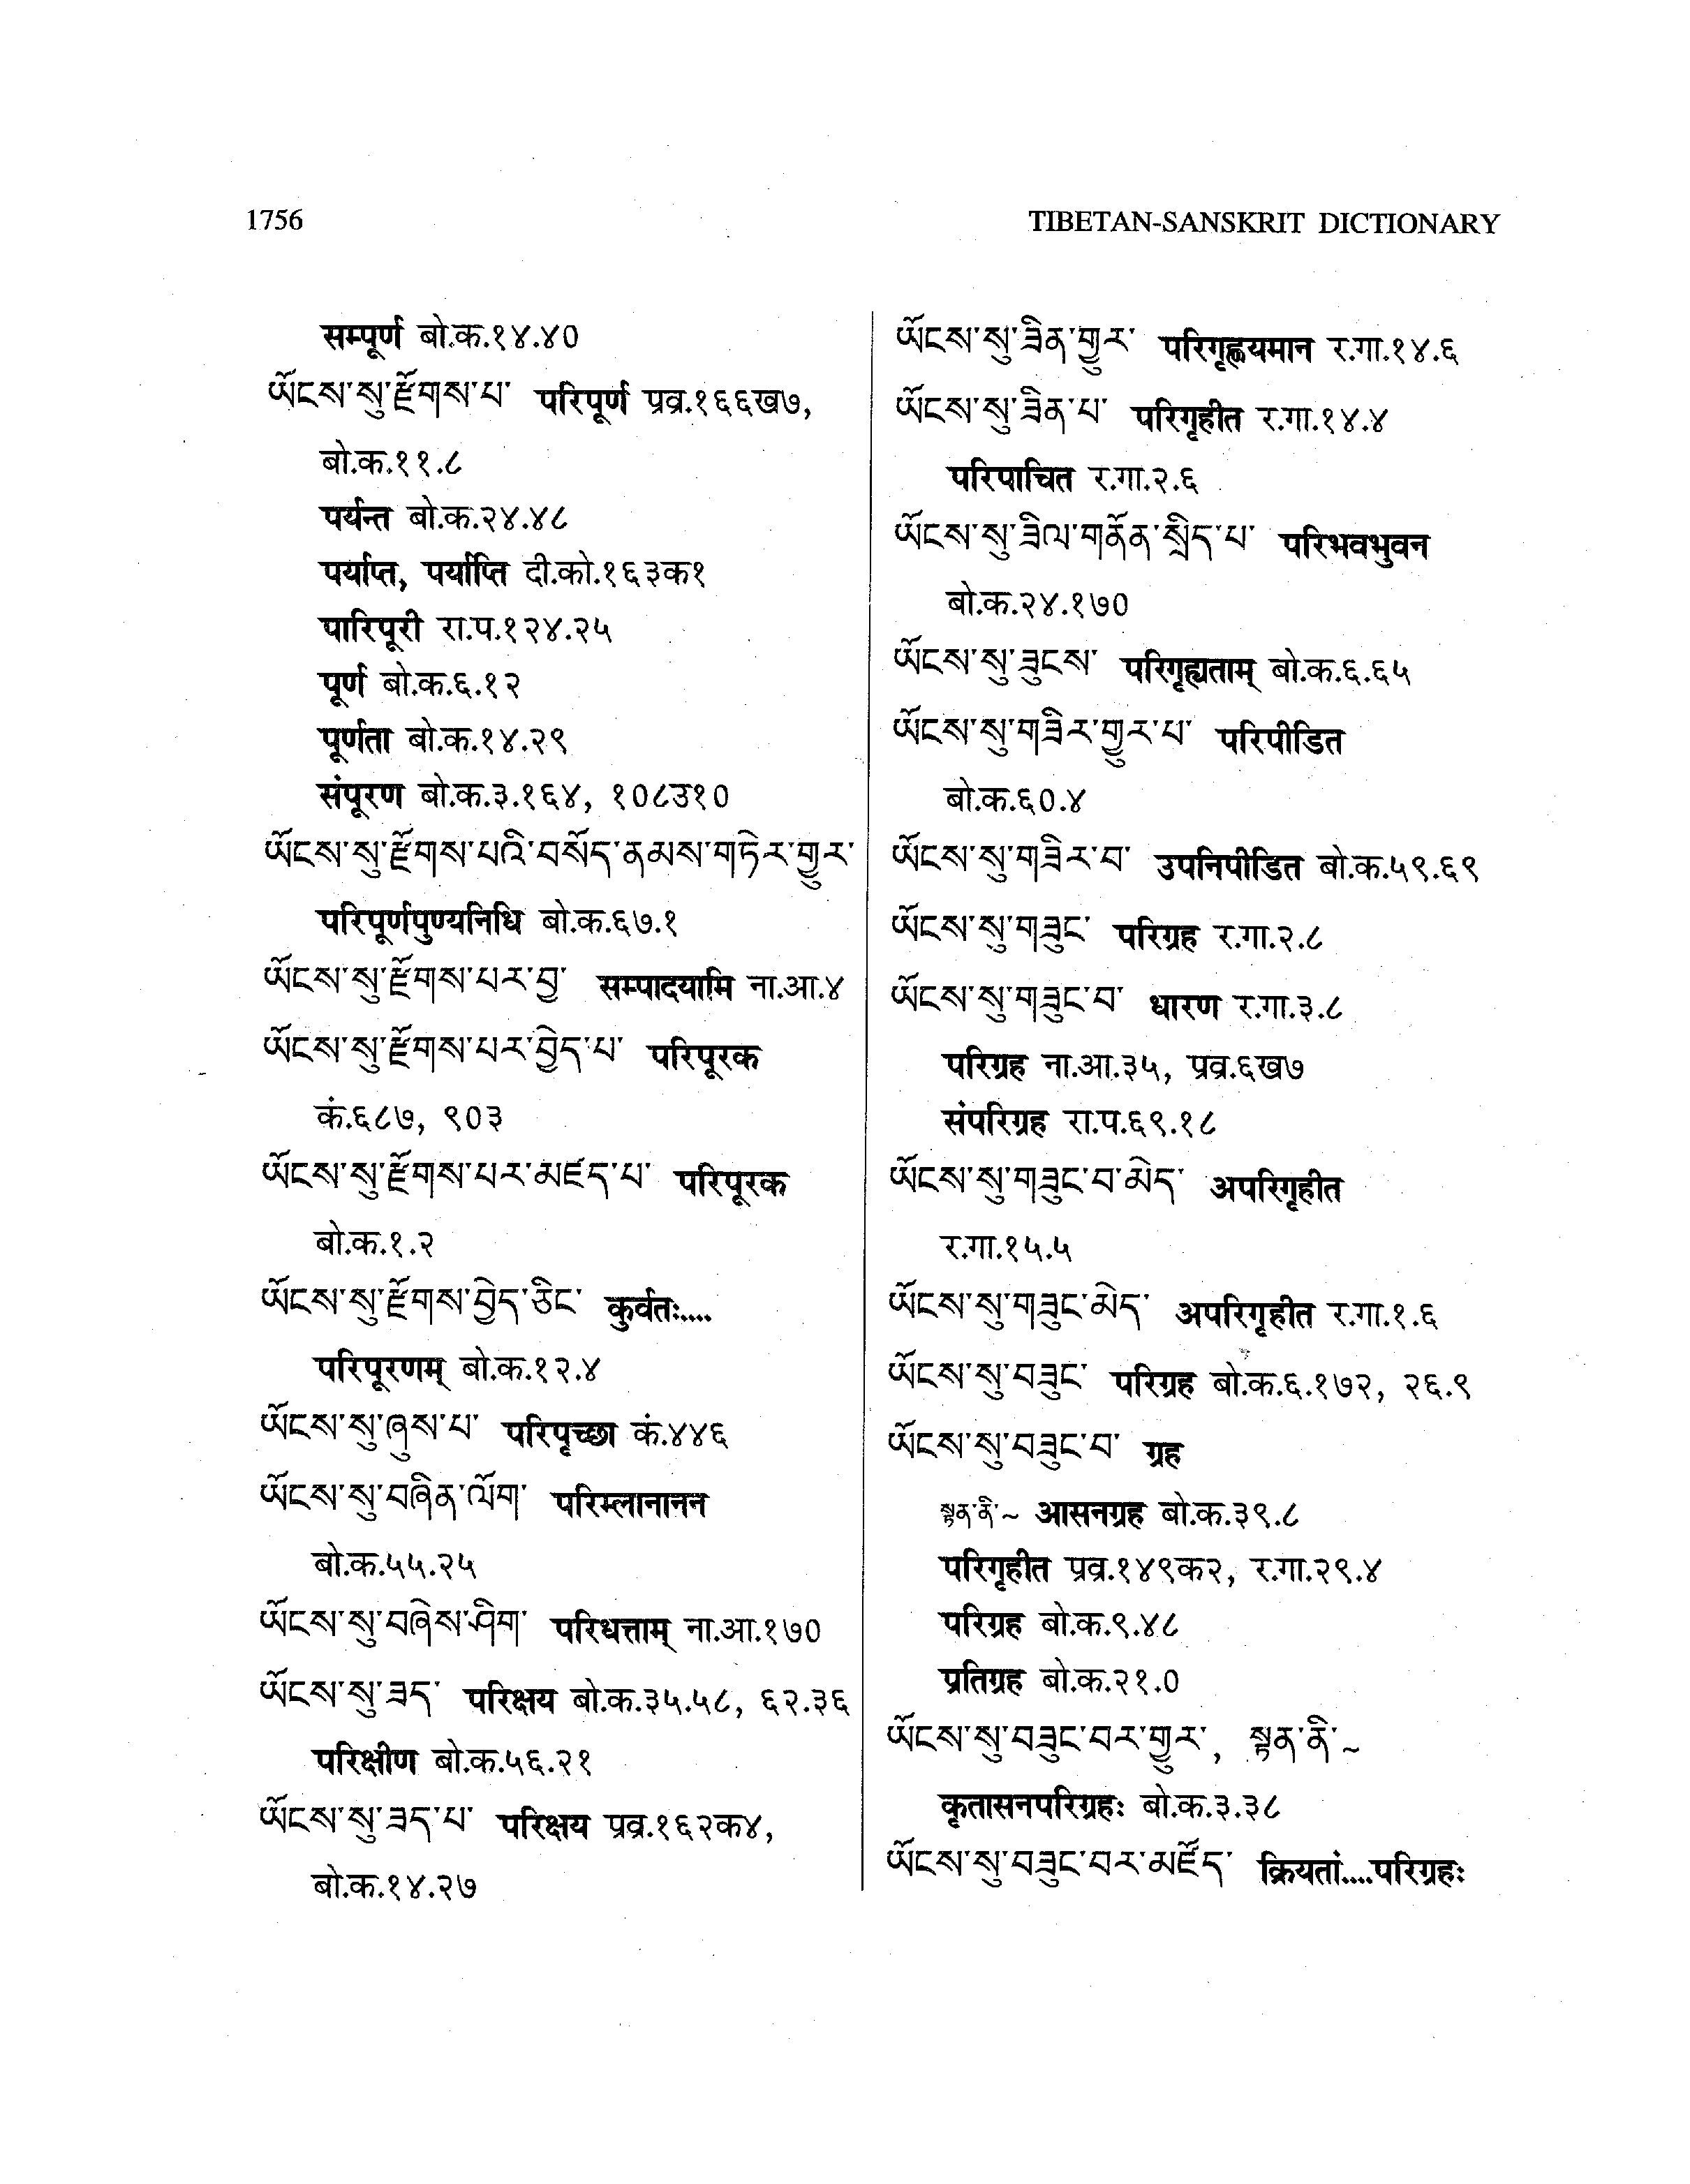 1756
TIBETAN-SANSKRIT DICTIONARY
सम्पूर्ण बो.क.१४.४०
ཡོངས་སུ་རྫོགས་པ་ परिपूर्ण प्रव्र.१६६ख७,
बो.क.११.८
पर्यन्त बो.क.२४.४८
पर्याप्त, पर्याप्ति दी.को.१६३क१
पारिपूरी रा.प.१२४.२५
पूर्ण बो.क.६.१२
पूर्णता बो.क.१४.२९
संपूरण बो.क.३.१६४, १०८उ१०
ཡོངས་སུ་རྫོགས་པའི་བསོད་ནམས་གཏེར་གྱུར་
परिपूर्णपुण्यनिधि बो.क.६७.१
ཡོངས་སུ་རྫོགས་པར་བྱ་ सम्पादयामि ना.आ.४
ཡོངས་སུ་རྫོགས་པར་བྱེད་པ་ परिपूरक
कं.६८७, ९०३
ཡོངས་སུ་རྫོགས་པར་མཛད་པ་ परिपूरक
बो.क.१.२
ཡོངས་སུ་རྫོགས་བྱེད་ཅིང་ कुर्वतः....
परिपूरणम् बो.क.१२.४
ཡོངས་སུ་ཞུས་པ་ परिपृच्छा कं.४४६
ཡོངས་སུ་བཞིན་ལོག་ परिम्लानानन
बो.क.५५.२५
ཡོངས་སུ་བཞེས་ཤིག་ परिधत्ताम् ना.आ.१७०
ཡོངས་སུ་ཟད་ परिक्षय बो.क.३५.५८, ६२.३६
परिक्षीण बो.क.५६.२१
ཡོངས་སུ་ཟད་པ་ परिक्षय प्रव्र.१६२क४,
बो.क.१४.२७
ཡོངས་སུ་ཟིན་གྱུར་ परिगृह्णयमान र.गा.१४.६
ཡོངས་སུ་ཟིན་པ་ परिगृहीत र.गा.१४.४
परिपाचित र.गा.२.६
ཡོངས་སུ་ཟིལ་གནོན་སྲིད་པ་ परिभवभुवन
बो.क.२४.१७०
ཡོངས་སུ་ཟུངས་ परिगृह्यताम् बो.क.६.६५
ཡོངས་སུ་གཟིར་གྱུར་པ་ परिपीडित
बो.क.६०.४
ཡོངས་སུ་གཟིར་བ་ उपनिपीडित बो.क.५९.६९
ཡོངས་སུ་གཟུང་ परिग्रह र.गा.२.८
ཡོངས་སུ་གཟུང་བ་ धारण र.गा.३.८
परिग्रह ना.आ.३५, प्रव्र.६ख७
संपरिग्रह रा.प.६९.१८
ཡོངས་སུ་གཟུང་བ་མེད་ अपरिगृहीत
र.गा.१५.५
ཡོངས་སུ་གཟུང་མེད་ अपरिगृहीत र.गा.१.६
ཡོངས་སུ་བཟུང་ परिग्रह बो.क.६.१७२, २६.९
ཡོངས་སུ་བཟུང་བ་ ग्रह
སྟན་ནི་~ आसनग्रह बो.क.३९.८
परिगृहीत प्रव्र.१४९क२, र.गा.२९.४
परिग्रह बो.क.९.४८
प्रतिग्रह बो.क.२१.०
ཡོངས་སུ་བཟུང་བར་གྱུར་, སྟན་ནི་~
कृतासनपरिग्रहः बो.क.३.३८
ཡོངས་སུ་བཟུང་བར་མཛོད་ क्रियतां....परिग्रहः